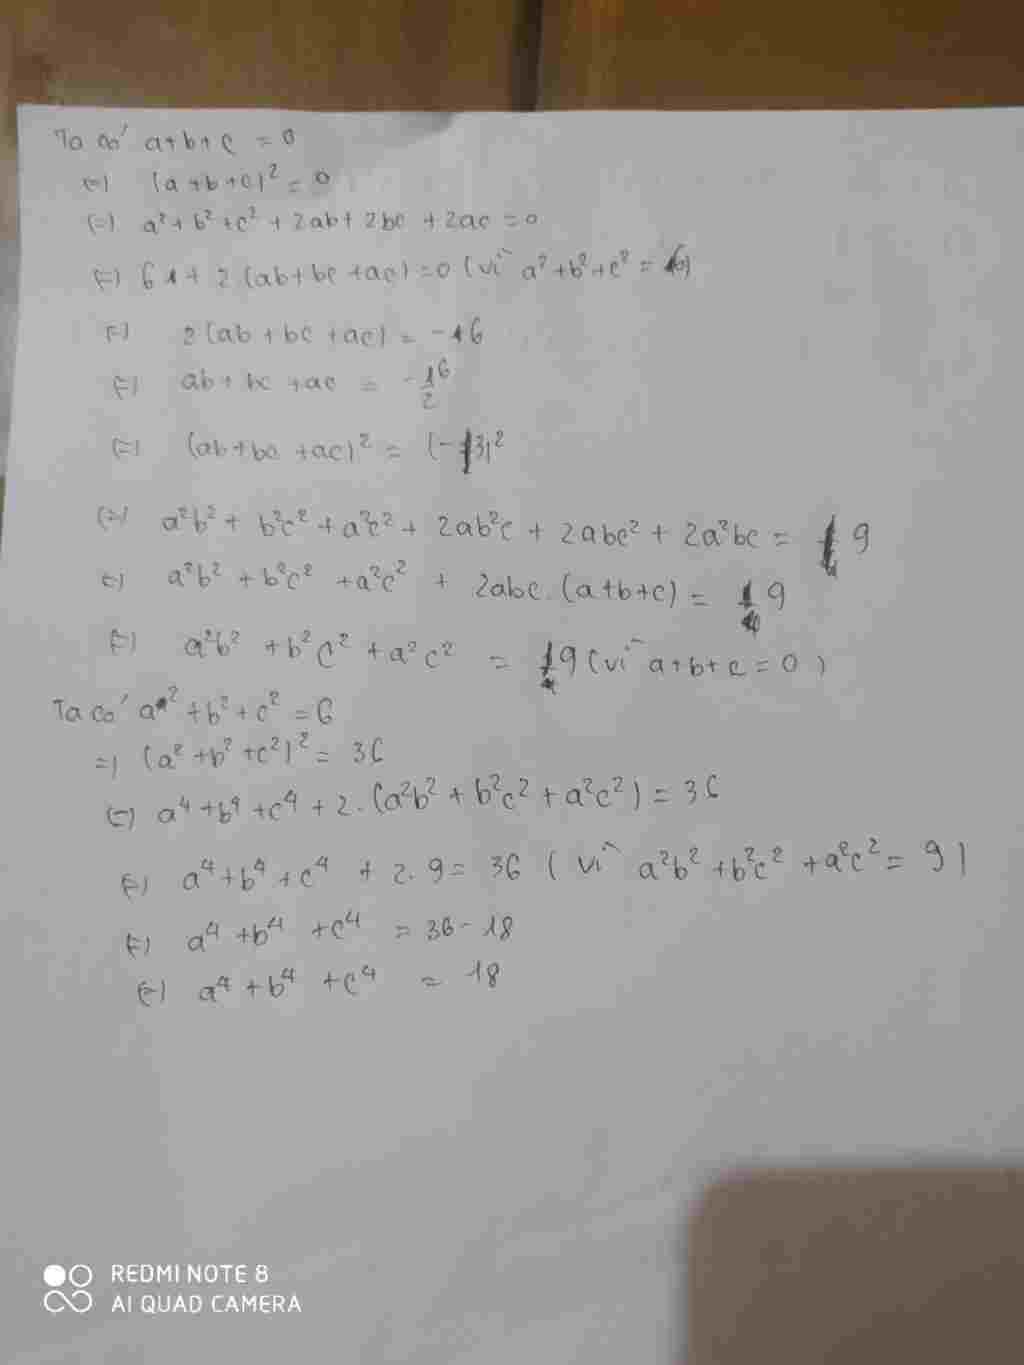 Ta có a+b+c = 0
(=) (a+b+c)² = 0
(=) a² + b² + c² + 2ab + 2bc + 2ac = 0
(=) 6 + 2 (ab + bc + ac) = 0 (vì a² + b² + c² = 6)
(=) 2 (ab + bc + ac) = -6
(=) ab + bc + ac = -6/2
(=) (ab + bc + ac)² = (-3)²
(=) a²b² + b²c² + a²c² + 2ab²c + 2abc² + 2a²bc = 9
(=) a²b² + b²c² + a²c² + 2abc. (a+b+c) = 9
(=) a²b² + b²c² + a²c² = 9 (vì a+b+c = 0)
Ta có a² + b² + c² = 6
=) (a² + b² + c²)² = 36
(=) a⁴ + b⁴ + c⁴ + 2. (a²b² + b²c² + a²c²) = 36
(=) a⁴ + b⁴ + c⁴ + 2. 9 = 36 (vì a²b² + b²c² + a²c² = 9)
(=) a⁴ + b⁴ + c⁴ = 36 - 18
(=) a⁴ + b⁴ + c⁴ = 18
REDMI NOTE 8
AI QUAD CAMERA